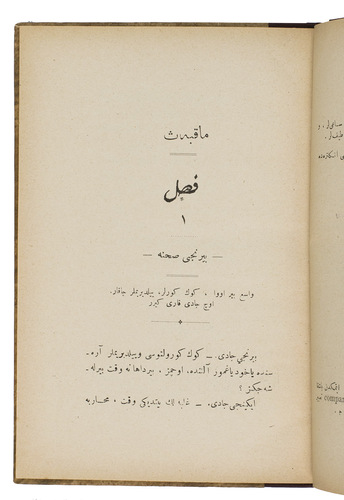 ماقبه‌ث
فصل
١
— برنجی صحنه —
واسع بر اووا ، كوك كورلر. ييلديريملر چاقار.
اوچ جادی قاری كيرر
برنجی جادی. ـ كوك كورولتوسی وييلديريملر آره‌ـ
سنده ياخود ياغمور آلتنده، اوچمز ، بردها نه وقت بيرله‌ـ
شه‌جكز ؟
ايكينجی جادی. ـ غلبه لك بيتديكی وقت ، محاربه
compan